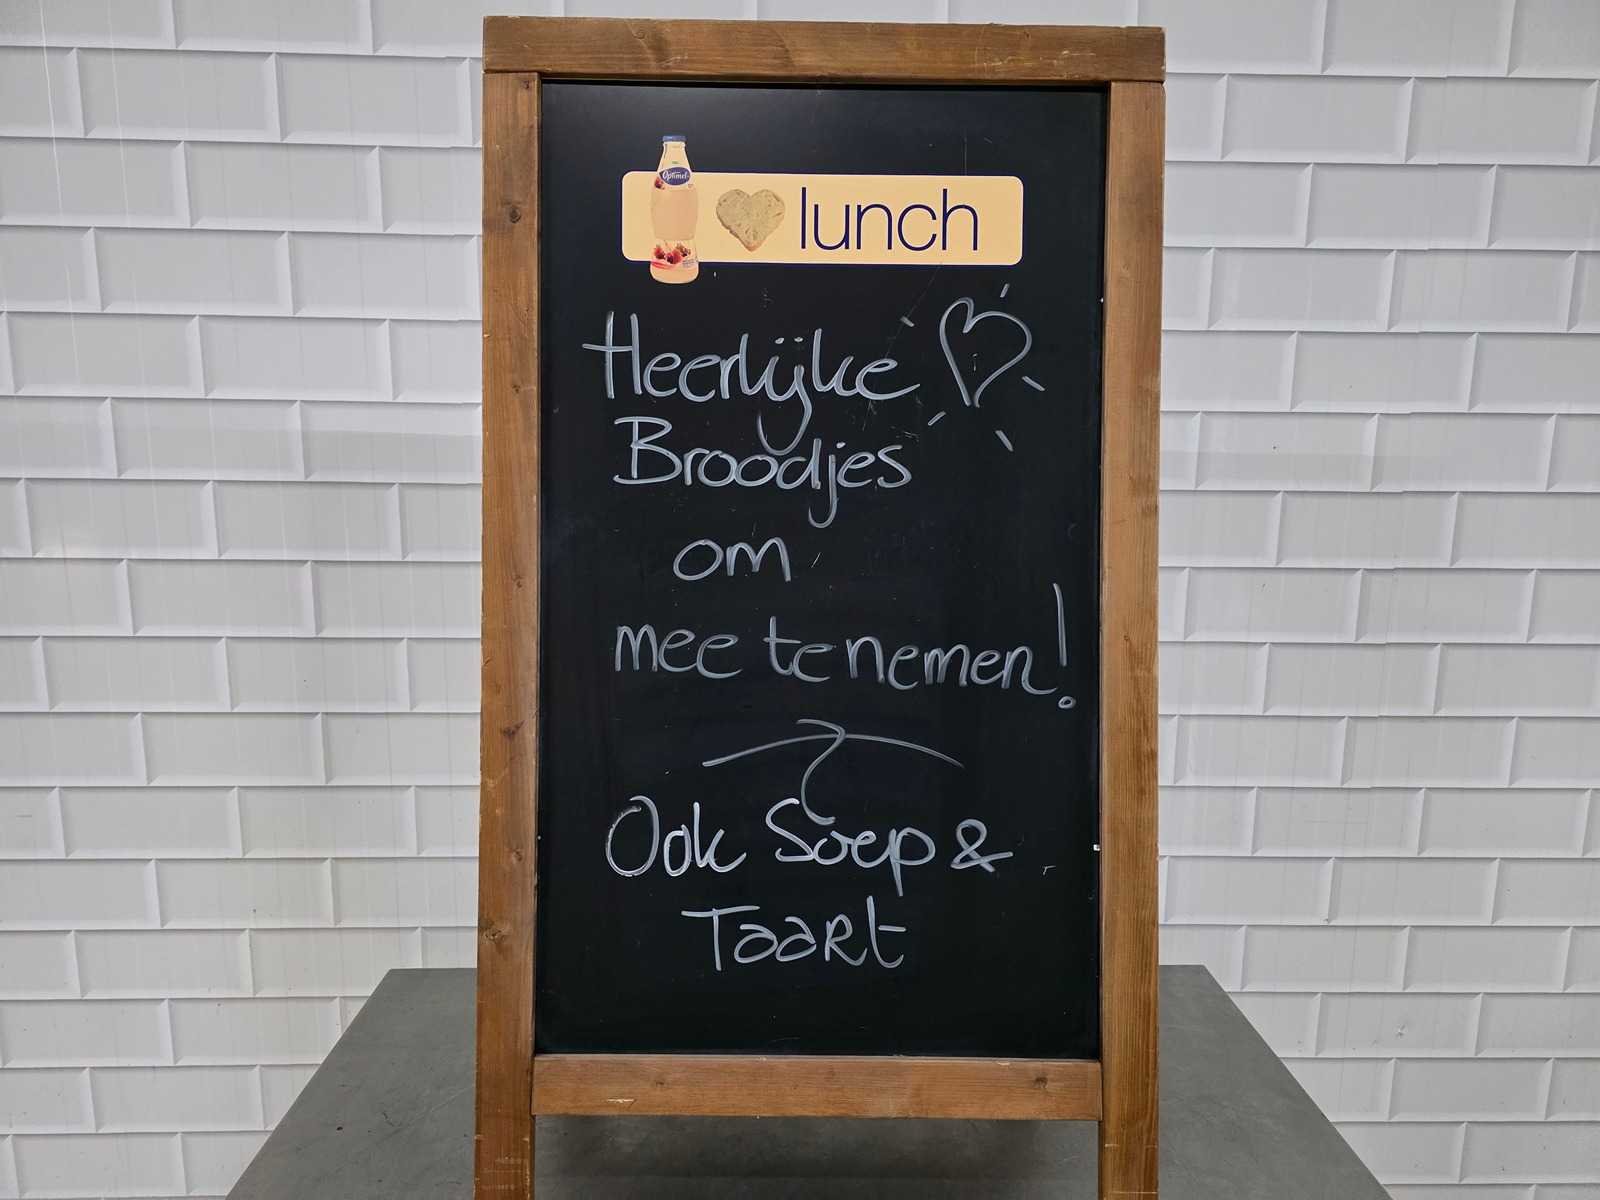 Optimel
lunch
Heerlijke
Broodjes
om
mee te nemen!
Ook Soep &
Taart